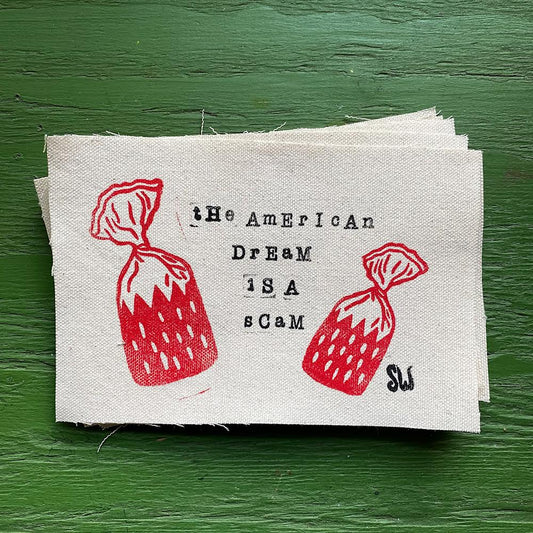 tHe AmErIcAn
DrEaM
iS A
sCaM
SW